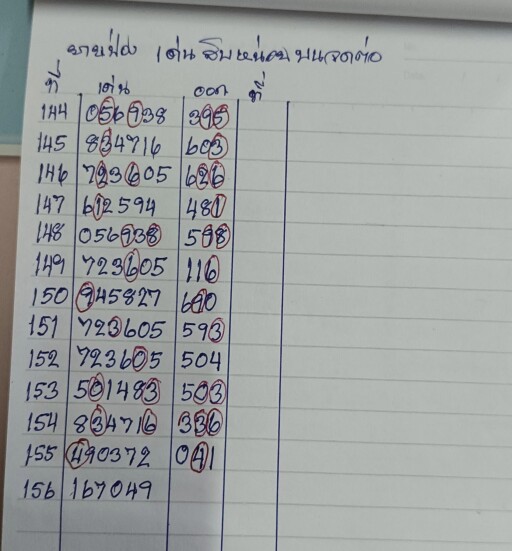 เด่น สิบหน่วย บน
ที่ เด่น ออก ที่
144 056938 395
145 834716 603
146 723605 626
147 612594 481
148 056938 598
149 723605 116
150 945827 690
151 723605 593
152 723605 504
153 501483 503
154 834716 336
155 490372 041
156 167049